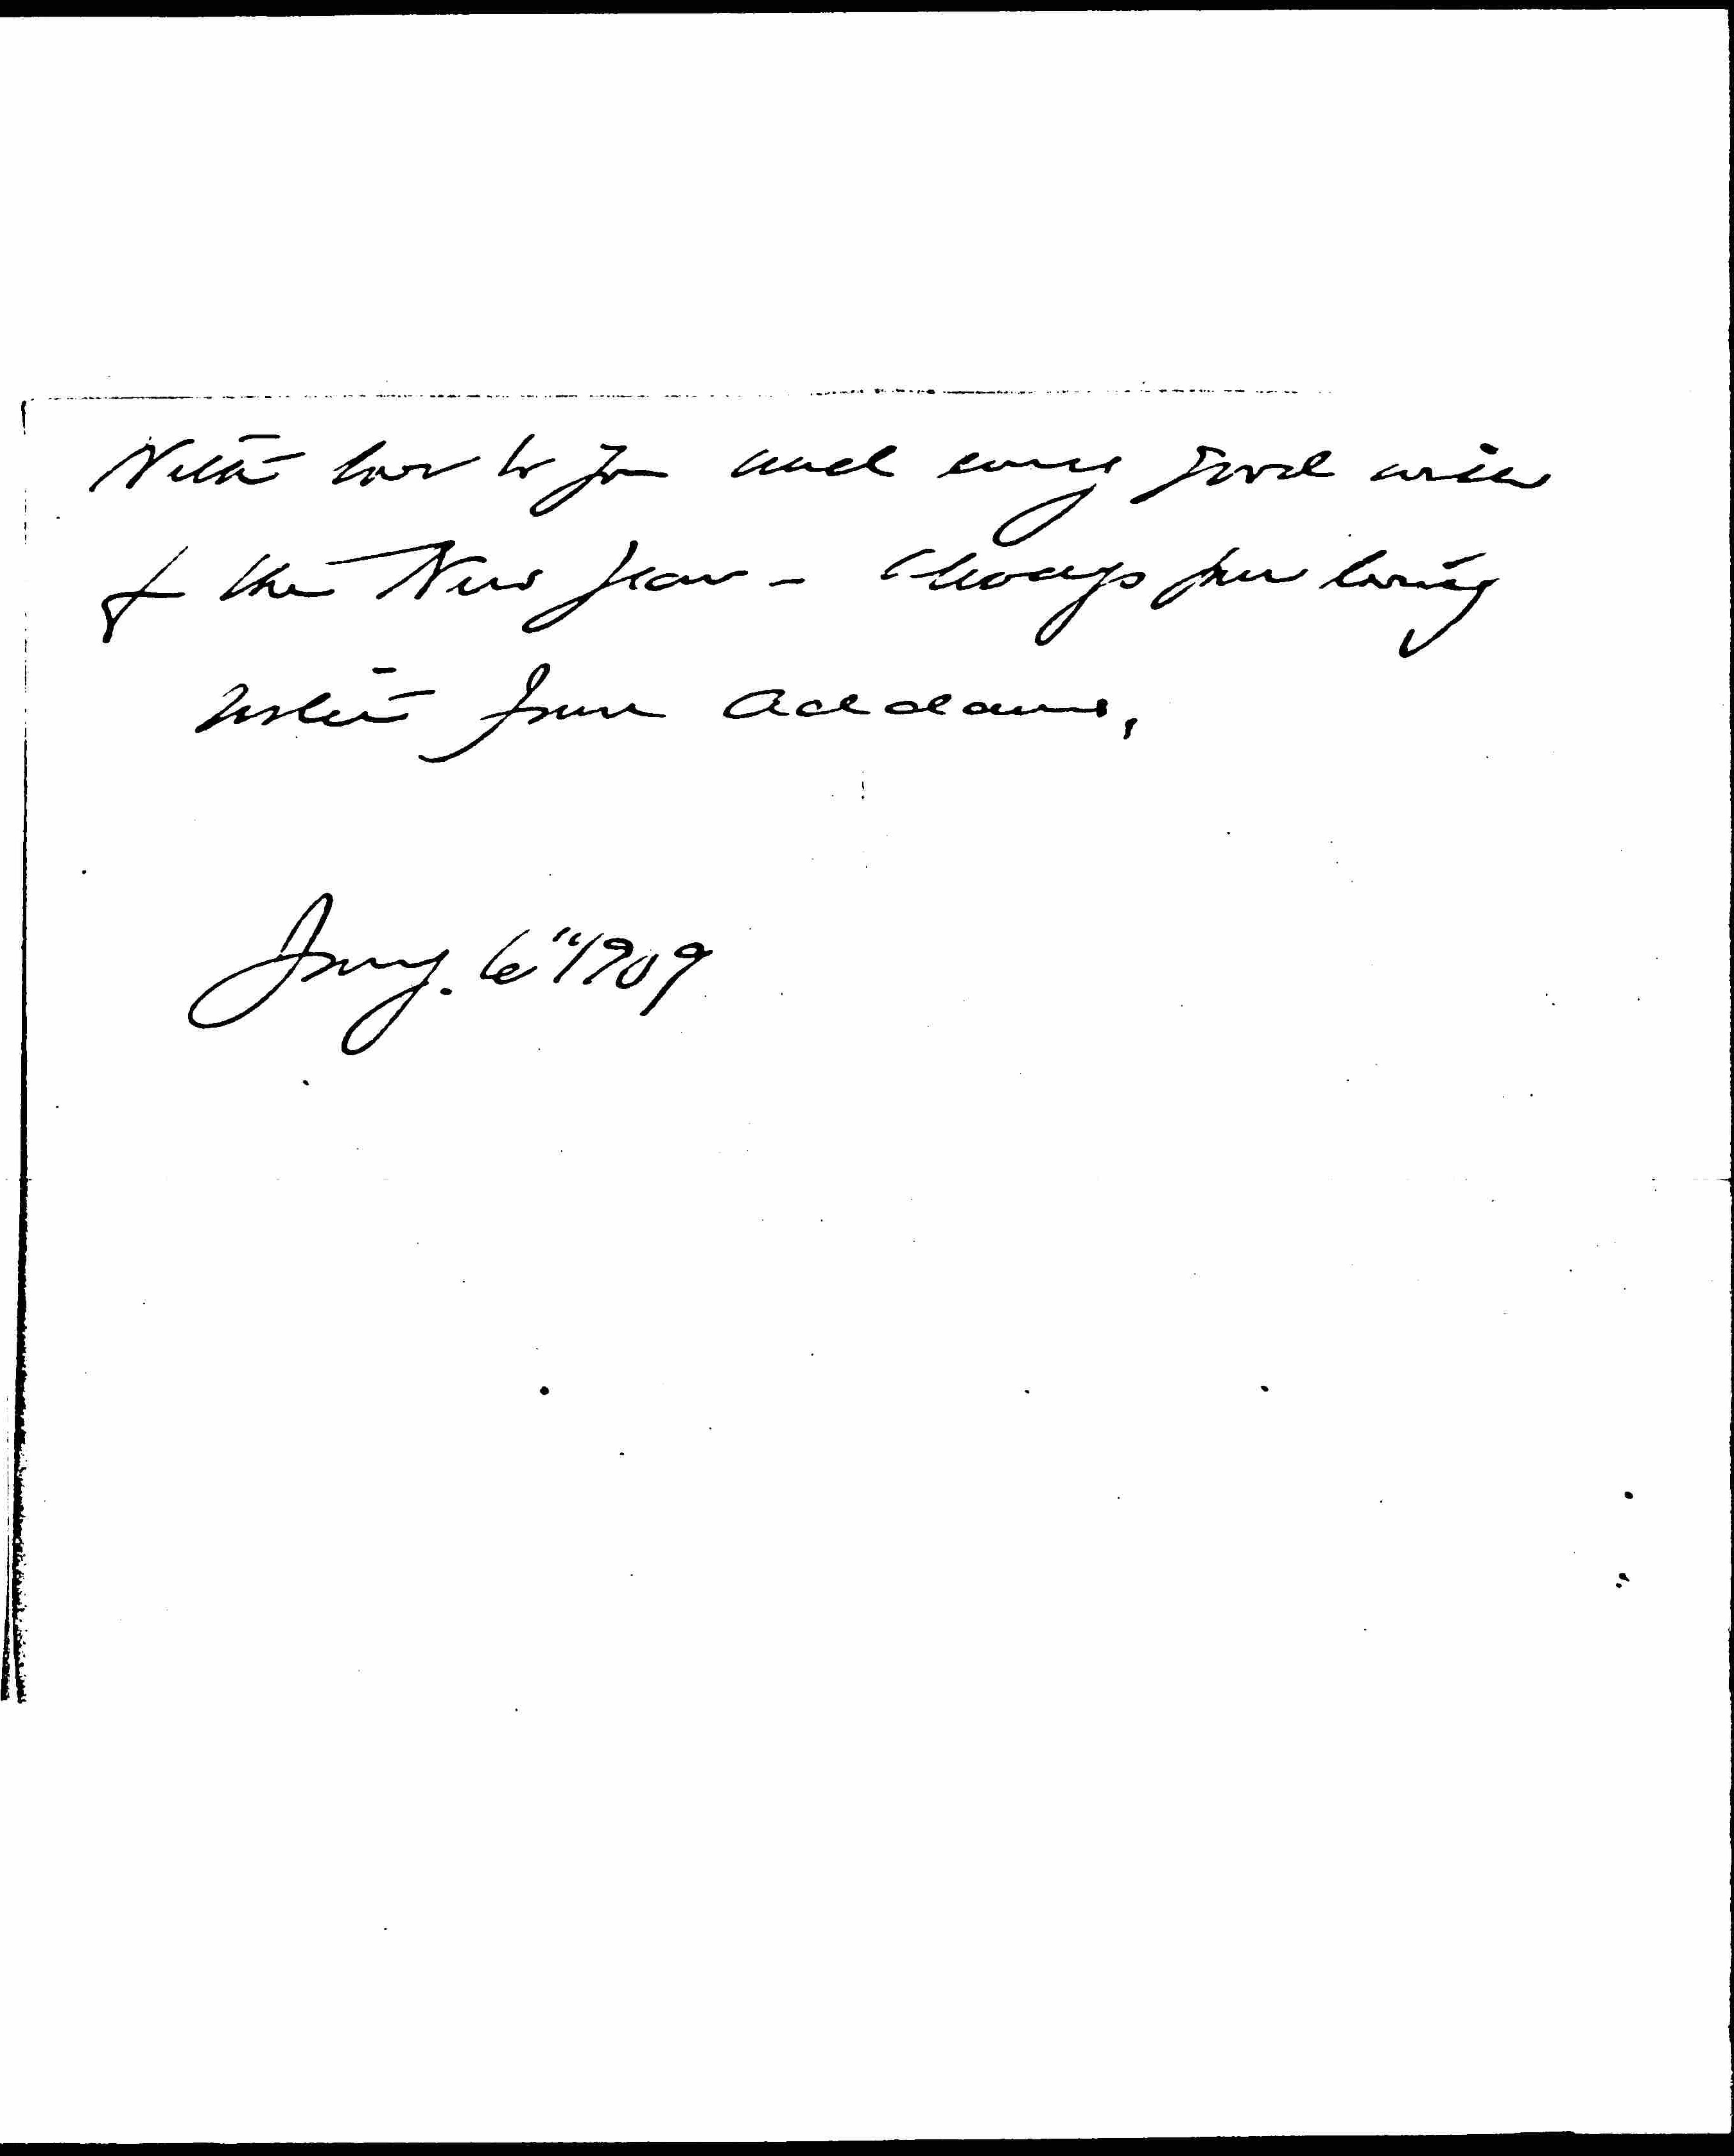 With love to you and every good wish
of the New Year - Always your loving
Jane Addams.
Jany. 6" 1909